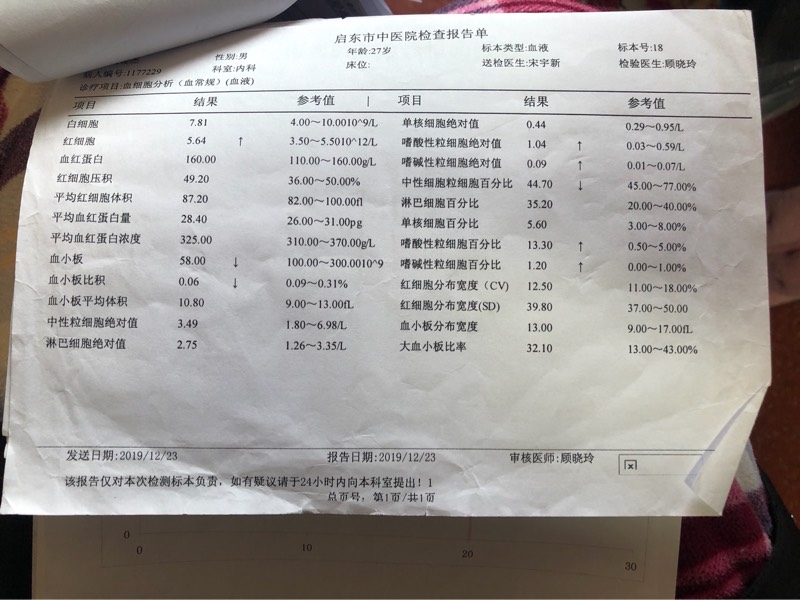 启东市中医院检查报告单
性别:男 年龄:27岁 标本类型:血液 标本号:18
病人编号:1177229 科室:内科 床位: 送检医生:宋宇新 检验医生:顾晓玲
诊疗项目:血细胞分析（血常规）(血液)
项目 结果 参考值 | 项目 结果 参考值
白细胞 7.81 4.00～10.0010^9/L 单核细胞绝对值 0.44 0.29～0.95/L
红细胞 5.64 ↑ 3.50～5.5010^12/L 嗜酸性粒细胞绝对值 1.04 ↑ 0.03～0.59/L
血红蛋白 160.00 110.00～160.00g/L 嗜碱性粒细胞绝对值 0.09 ↑ 0.01～0.07/L
红细胞压积 49.20 36.00～50.00% 中性细胞粒细胞百分比 44.70 ↓ 45.00～77.00%
平均红细胞体积 87.20 82.00～100.00fl 淋巴细胞百分比 35.20 20.00～40.00%
平均血红蛋白量 28.40 26.00～31.00pg 单核细胞百分比 5.60 3.00～8.00%
平均血红蛋白浓度 325.00 310.00～370.00g/L 嗜酸性粒细胞百分比 13.30 ↑ 0.50～5.00%
血小板 58.00 ↓ 100.00～300.0010^9 嗜碱性粒细胞百分比 1.20 ↑ 0.00～1.00%
血小板比积 0.06 ↓ 0.09～0.31% 红细胞分布宽度（CV) 12.50 11.00～18.00%
血小板平均体积 10.80 9.00～13.00fL 红细胞分布宽度(SD) 39.80 37.00～50.00
中性粒细胞绝对值 3.49 1.80～6.98/L 血小板分布宽度 13.00 9.00～17.00fL
淋巴细胞绝对值 2.75 1.26～3.35/L 大血小板比率 32.10 13.00～43.00%
发送日期:2019/12/23 报告日期:2019/12/23 审核医师:顾晓玲
该报告仅对本次检测标本负责，如有疑议请于24小时内向本科室提出！1
总页号：第1页/共1页
0
0 10 20 30